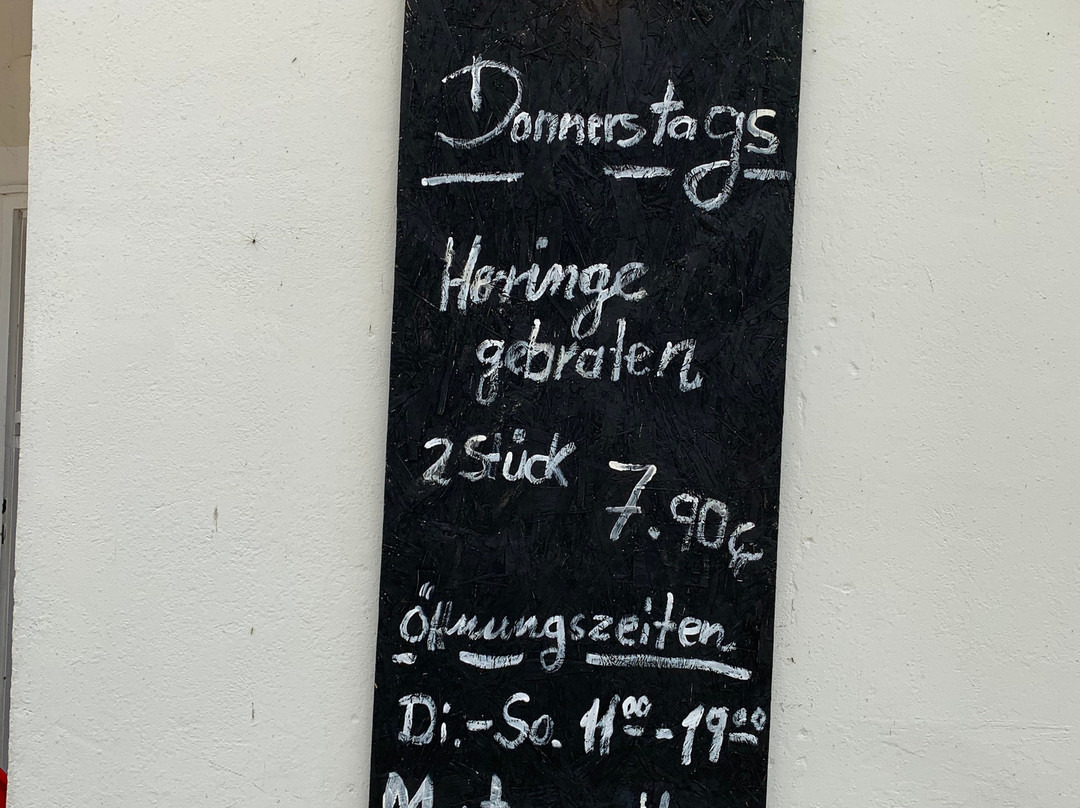 Donnerstags
Heringe
gebraten
2 Stück 7.90€
Öffnungszeiten
Di.-So. 11⁰⁰-19⁰⁰